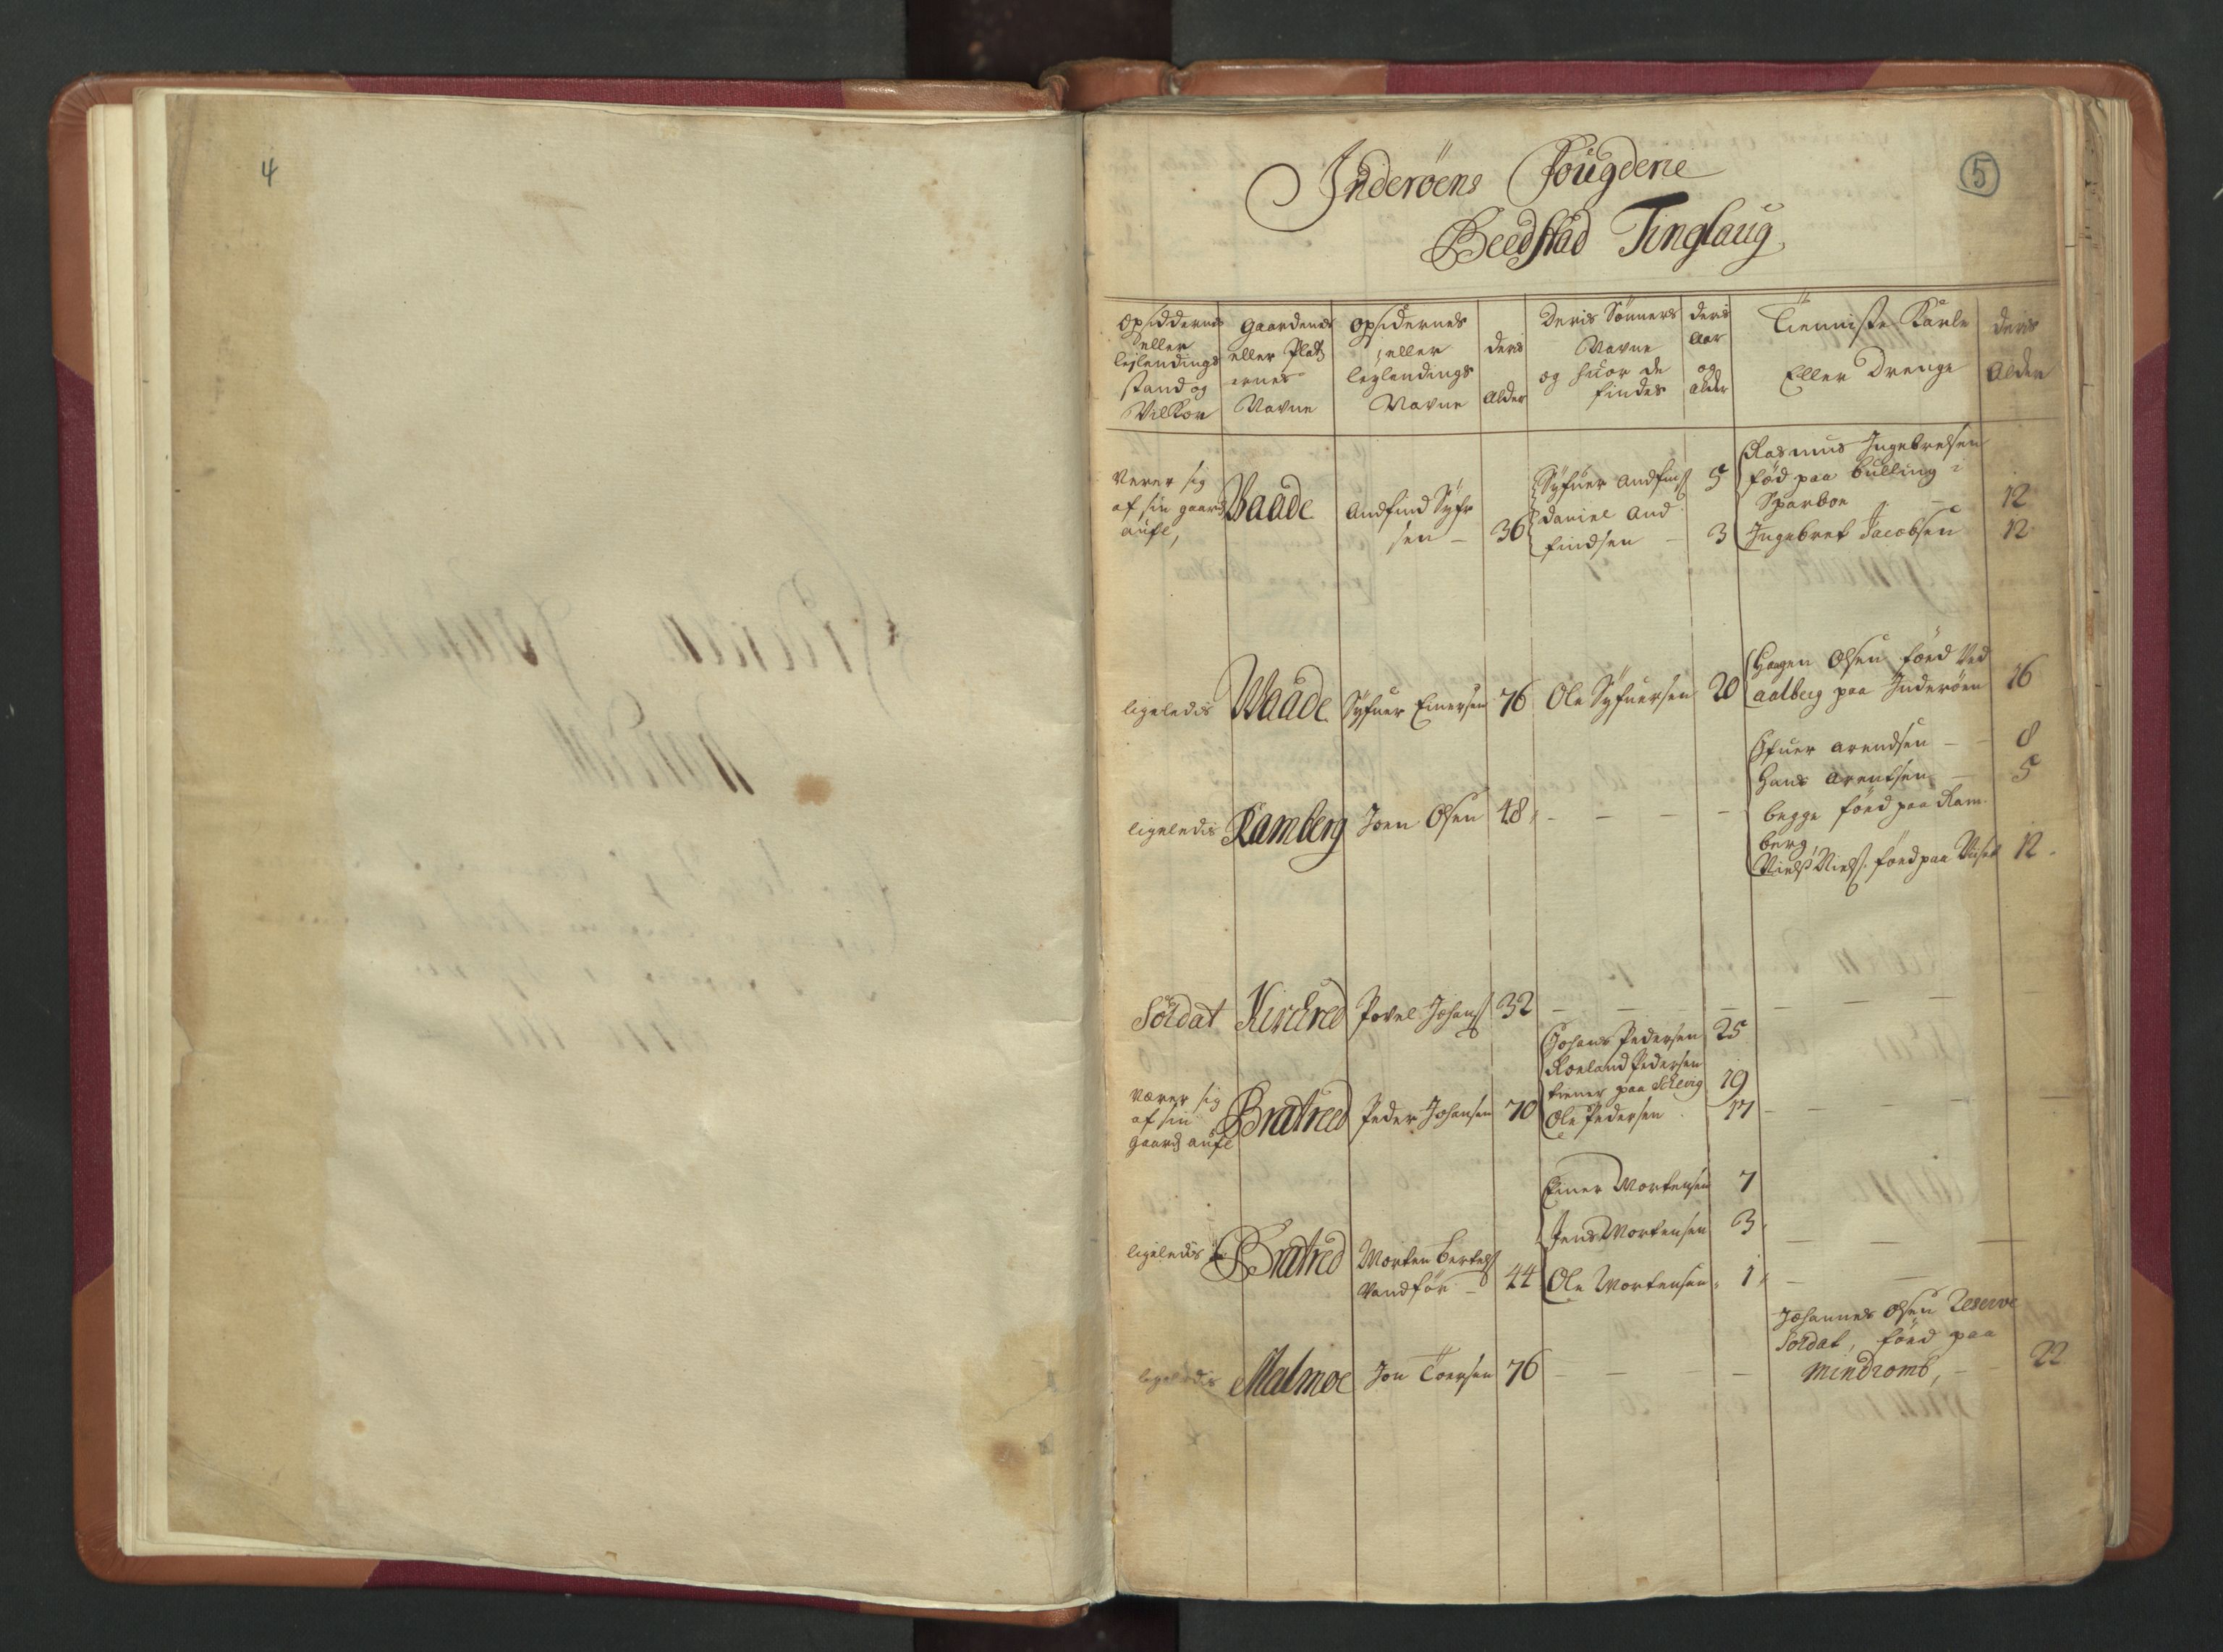 4
5
Inderöens Fougderie
Beedstad Tinglaug
Opsiddernes
eller
leylendings
stand og
Vilkor
Gaardenes
eller Platz
ernes
Navne
Opsidernes
eller
leylendings
Navne
deris
Alder
Deris Sönners
Navne
og huor de
findes
deris
Aar
og
alder
Tienniste Karle
Eller Drenge
deris
Alder
Nerer sig
af sin gaards
aufl,
Waade
Andfind Syfr
sen - 36
Syfuer Andfins 5
Daniel And
findsen - 3
Rasmus Ingebretsen
föd paa Bulling i
Sparboe 12
Ingebret Jacobsen 12
ligeledis Waade Syfuer Einersen 76 Ole Syfuersen 20
Haagen Olsen föed Ved
Aalberg paa Inderöen 16
ligeledis Ramberg Joen Olsen 48
Syfuer Arendsen - 8
Hans Arentsen - 5
begge föed paa Ram
berg,
Niels Niels. föed paa 12
Soldat Kirckred Povel Johans 32
Nærer sig
af sin
gaards aufl
Bratreed Peder Johansen 70
Johans Pedersen 25
Roeland Pedersen
tiener paa Schevig 19
Ole Pedersen 17
ligeledis Bratred Morten Bertels
Vandför - 44
Einer Mortensen 7
Jens Mortensen 3
Ole Mortensen 1
ligeledis Malmoe Jon Toersen 76
Johannes Olsen Reserve
Soldat, föed paa
Mindromb, 22